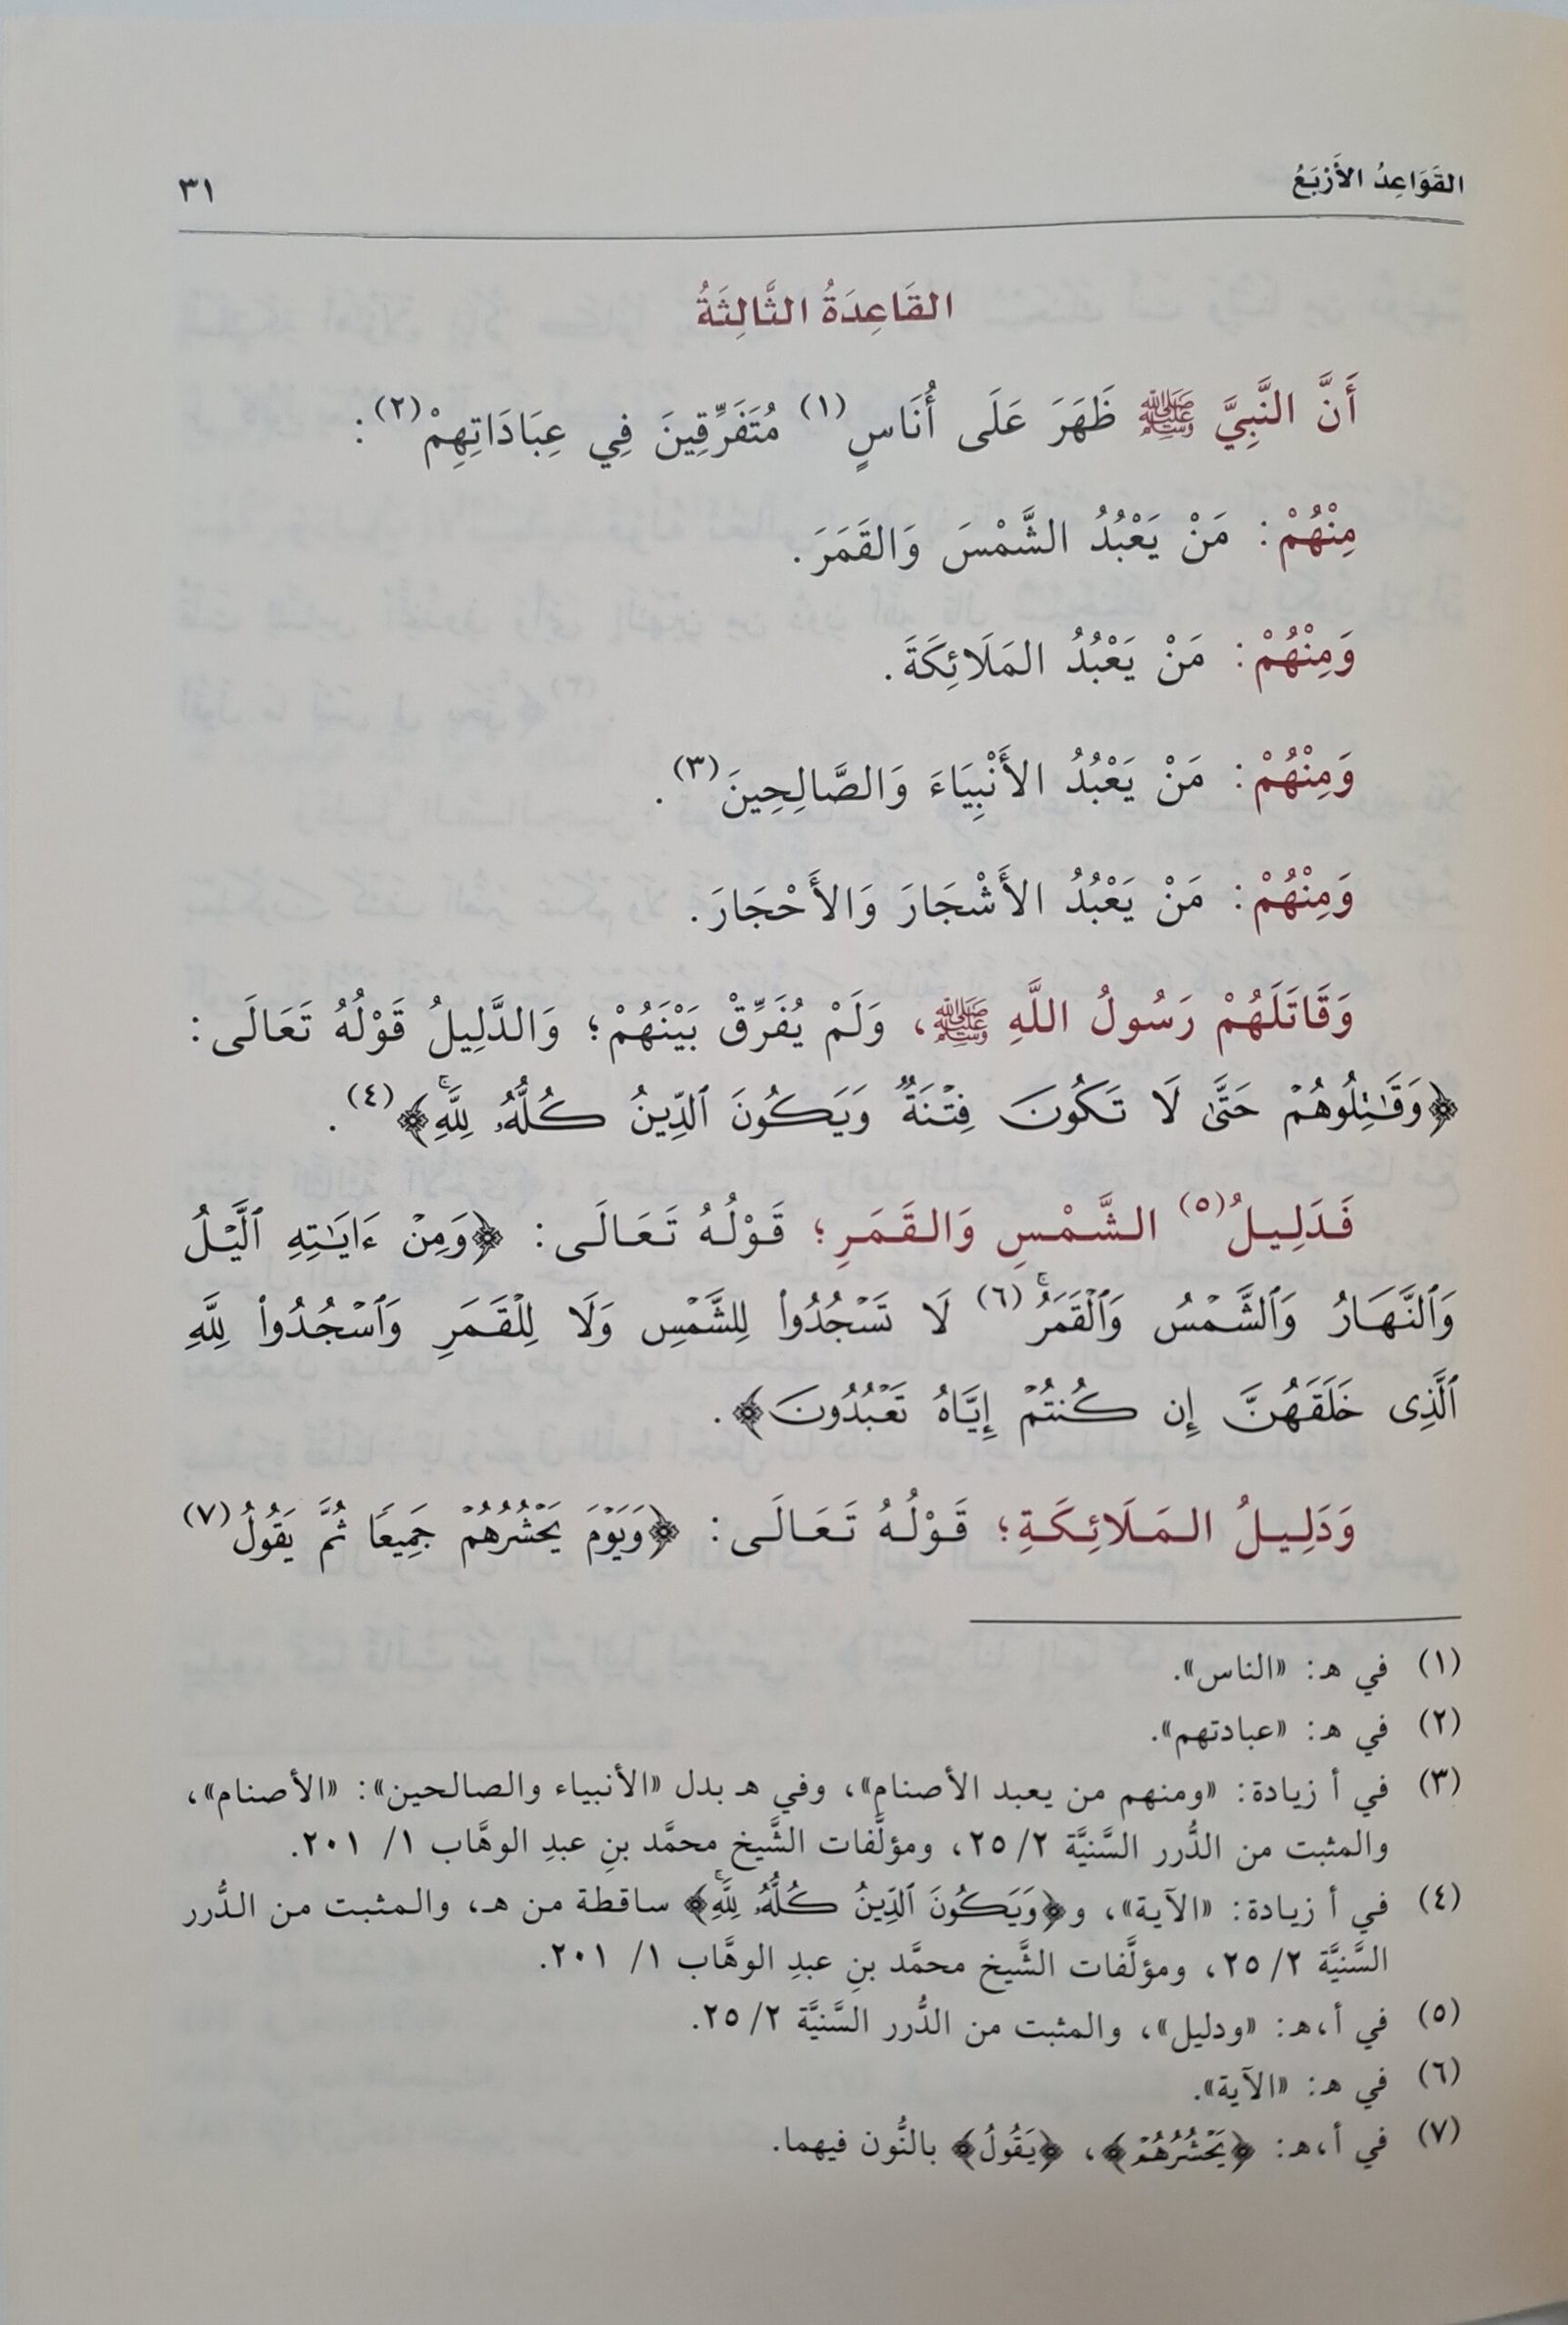 القَوَاعِدُ الأَرْبَعُ ٣١
القَاعِدَةُ الثَّالِثَةُ
أَنَّ النَّبِيَّ ﷺ ظَهَرَ عَلَى أُنَاسٍ(١) مُتَفَرِّقِينَ فِي عِبَادَاتِهِمْ(٢):
مِنْهُمْ: مَنْ يَعْبُدُ الشَّمْسَ وَالقَمَرَ.
وَمِنْهُمْ: مَنْ يَعْبُدُ المَلَائِكَةَ.
وَمِنْهُمْ: مَنْ يَعْبُدُ الأَنْبِيَاءَ وَالصَّالِحِينَ(٣).
وَمِنْهُمْ: مَنْ يَعْبُدُ الأَشْجَارَ وَالأَحْجَارَ.
وَقَاتَلَهُمْ رَسُولُ اللَّهِ ﷺ، وَلَمْ يُفَرِّقْ بَيْنَهُمْ؛ وَالدَّلِيلُ قَوْلُهُ تَعَالَى:
﴿وَقَٰتِلُوهُمْ حَتَّىٰ لَا تَكُونَ فِتْنَةٌ وَيَكُونَ ٱلدِّينُ كُلُّهُۥ لِلَّهِۚ﴾(٤).
فَدَلِيلُ(٥) الشَّمْسِ وَالقَمَرِ؛ قَوْلُهُ تَعَالَى: ﴿وَمِنْ ءَايَٰتِهِ ٱلَّيْلُ
وَٱلنَّهَارُ وَٱلشَّمْسُ وَٱلْقَمَرُۚ(٦) لَا تَسْجُدُوا۟ لِلشَّمْسِ وَلَا لِلْقَمَرِ وَٱسْجُدُوا۟ لِلَّهِ
ٱلَّذِى خَلَقَهُنَّ إِن كُنتُمْ إِيَّاهُ تَعْبُدُونَ﴾.
وَدَلِيلُ المَلَائِكَةِ؛ قَوْلُهُ تَعَالَى: ﴿وَيَوْمَ يَحْشُرُهُمْ جَمِيعًا ثُمَّ يَقُولُ(٧)
(١) في هـ: «الناس».
(٢) في هـ: «عبادتهم».
(٣) في أ زيادة: «ومنهم من يعبد الأصنام»، وفي هـ بدل «الأنبياء والصالحين»: «الأصنام»،
والمثبت من الدُّرر السَّنيَّة ٢/ ٢٥، ومؤلَّفات الشَّيخ محمَّد بنِ عبدِ الوهَّاب ١/ ٢٠١.
(٤) في أ زيادة: «الآية»، و﴿وَيَكُونَ ٱلدِّينُ كُلُّهُۥ لِلَّهِۚ﴾ ساقطة من هـ، والمثبت من الدُّرر
السَّنيَّة ٢/ ٢٥، ومؤلَّفات الشَّيخ محمَّد بنِ عبدِ الوهَّاب ١/ ٢٠١.
(٥) في أ، هـ: «ودليل»، والمثبت من الدُّرر السَّنيَّة ٢/ ٢٥.
(٦) في هـ: «الآية».
(٧) في أ، هـ: ﴿يَحْشُرُهُمْ﴾، ﴿يَقُولُ﴾ بالنُّون فيهما.